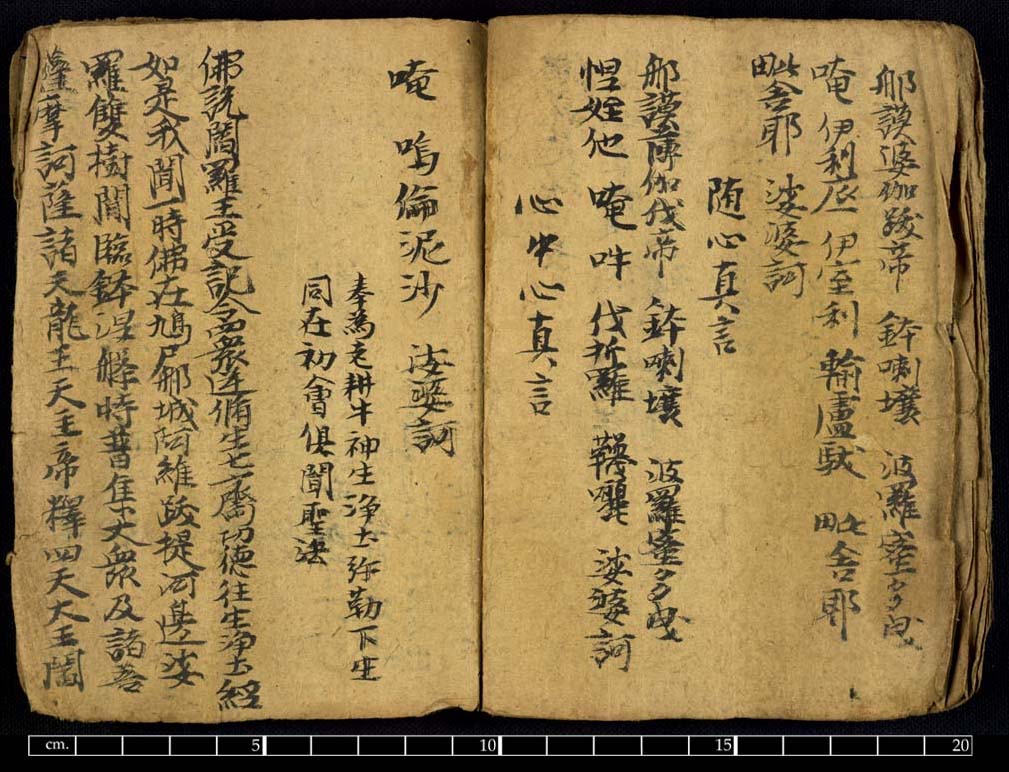 那謨婆伽跋帝 鉢喇壤 波羅蜜多曳
唵 伊利底 伊室利 輸盧馱 毗舍耶
毗舍耶 娑婆訶
随心真言
那謨薄伽伐帝 鉢喇壤 波羅蜜多曳
怛姪他 唵 吽 伐折羅 娑婆訶
心中心真言
唵 嗚倫泥沙 娑婆訶
奉為老耕牛神生淨土弥勒下生
同在初會俱聞聖法
佛說閻羅王受記令四眾逆修生七齋功德往生淨土經
如是我聞一時佛在鳩尸那城阿維跋提河邊娑
羅雙樹間臨般涅槃時普集大眾及諸菩
薩摩訶薩諸天龍王天王帝釋四天大王閻
cm. 5 10 15 20